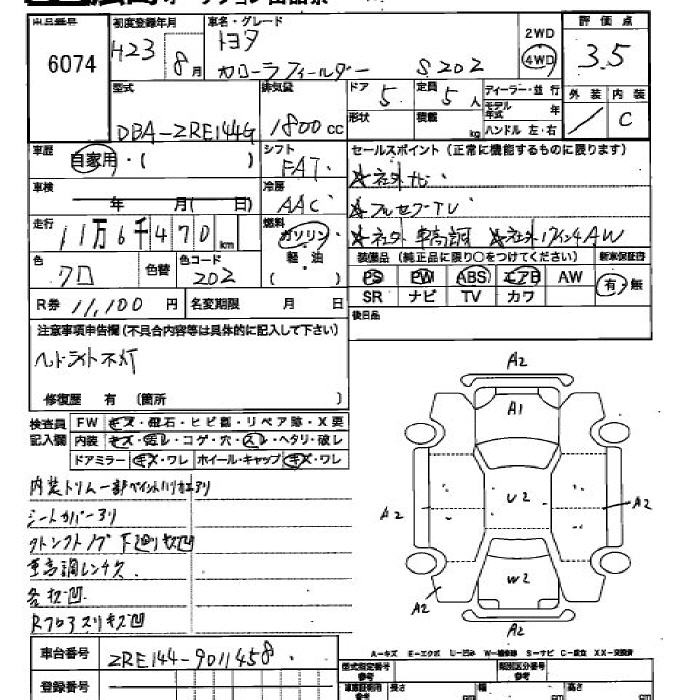 出品番号
6074
初度登録年月
H23 8月
車名・グレード
トヨタ
カローラフィールダー S202
2WD
4WD
評価点
3.5
外装 内装
C
型式
DBA-ZRE144G
排気量
1800cc
ドア
5
定員
5人
形状
積載
kg
ディーラー・並行
モデル年式 年
ハンドル 左・右
車歴
自家用・( )
シフト
FAT
セールスポイント(正常に機能するものに限ります)
★社外ナビ
★フルセグTV
★社外車高調 ★社外17インチAW
車検
年 月( 日)
冷房
AAC
走行
11万6千470km
燃料
ガソリン
軽油
( )
色
クロ
色替
色コード
202
装備品(純正品に限り○をつけてください)
新車保証書
PS PW ABS エアB AW
SR ナビ TV カワ
有・無
R券 11,100円
名変期限 月 日
後日品
注意事項申告欄(不具合内容等は具体的に記入して下さい)
ヘッドライト不灯
修復歴 有 (箇所 )
検査員記入欄
FW キズ・飛石・ヒビ割・リペア跡・X要
内装 キズ・汚レ・コゲ・穴・スレ・ヘタリ・破レ
ドアミラー キズ・ワレ ホイール・キャップ キズ・ワレ
内装トリム一部ペイントハリカエアリ
シートカバーアリ
下廻り
車高調レンチ欠
各凹
A2
A1
A2
U2
A2
W2
A2
A2
車台番号
ZRE144-9011458
登録番号
A-キズ E-エクボ U-凹み W-補修跡 S-サビ C-腐食 XX-交換済
型式指定番号
参考
類別区分番号
参考
長さ
幅
高さ
cm
cm
cm